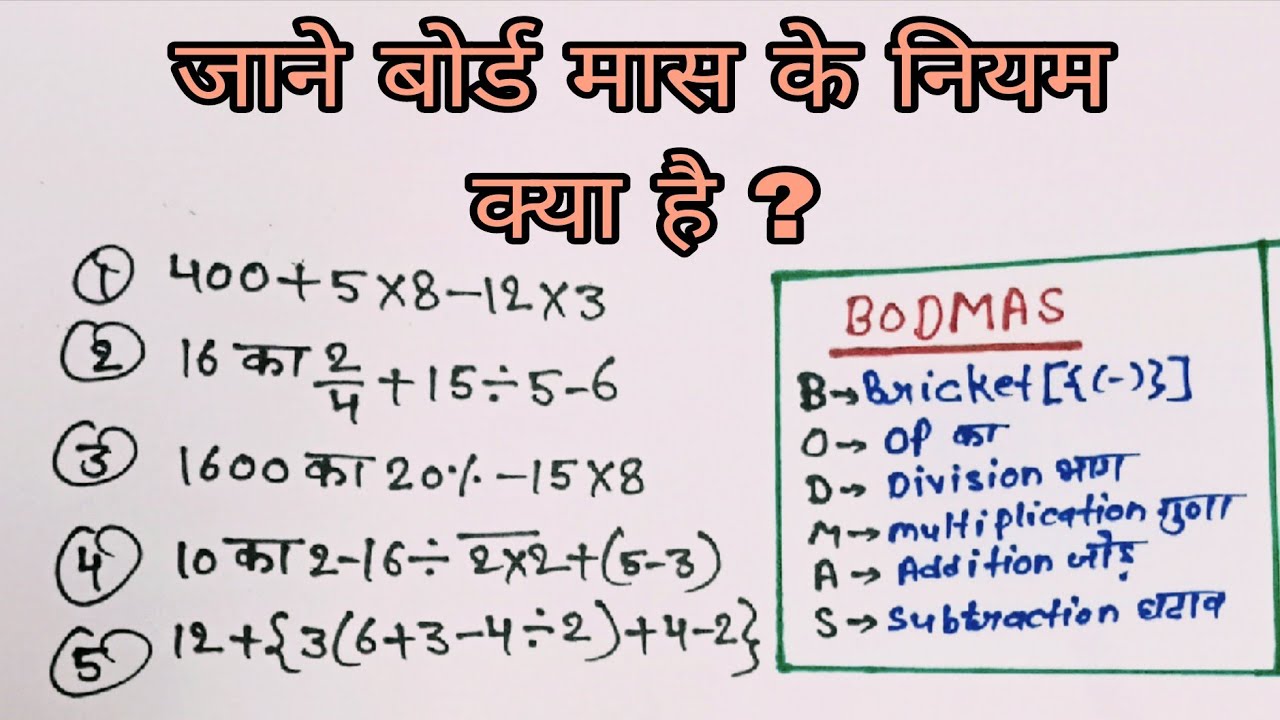 जाने बोर्ड मास के नियम
क्या है ?
① 400+5×8-12×3
② 16 का 2/4 +15÷5-6
③ 1600 का 20%-15×8
④ 10 का 2-16÷2̅×̅2̅+(5-3)
⑤ 12+{3(6+3-4÷2)+4-2}
BODMAS
B→Bricket[{(-)}]
O→ OP का
D→ Division भाग
M→ multiplication गुणा
A→ Addition जोड़
S→ Subtraction घटाव